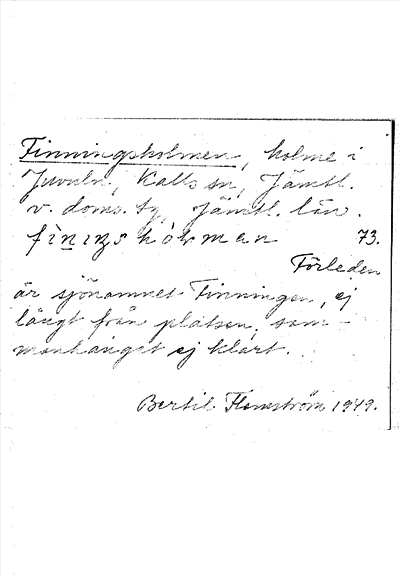 Finningsholmen, holme i
Juveln, Kalls sn, Jämtl.
v. doms. tg, Jämtl. län.
fìnɪŋshòḷmen 73.
Förleden
är sjönamnet Finningen, ej
långt från platsen, sam-
manhanget ej klart.
Bertil Flemström 1949.